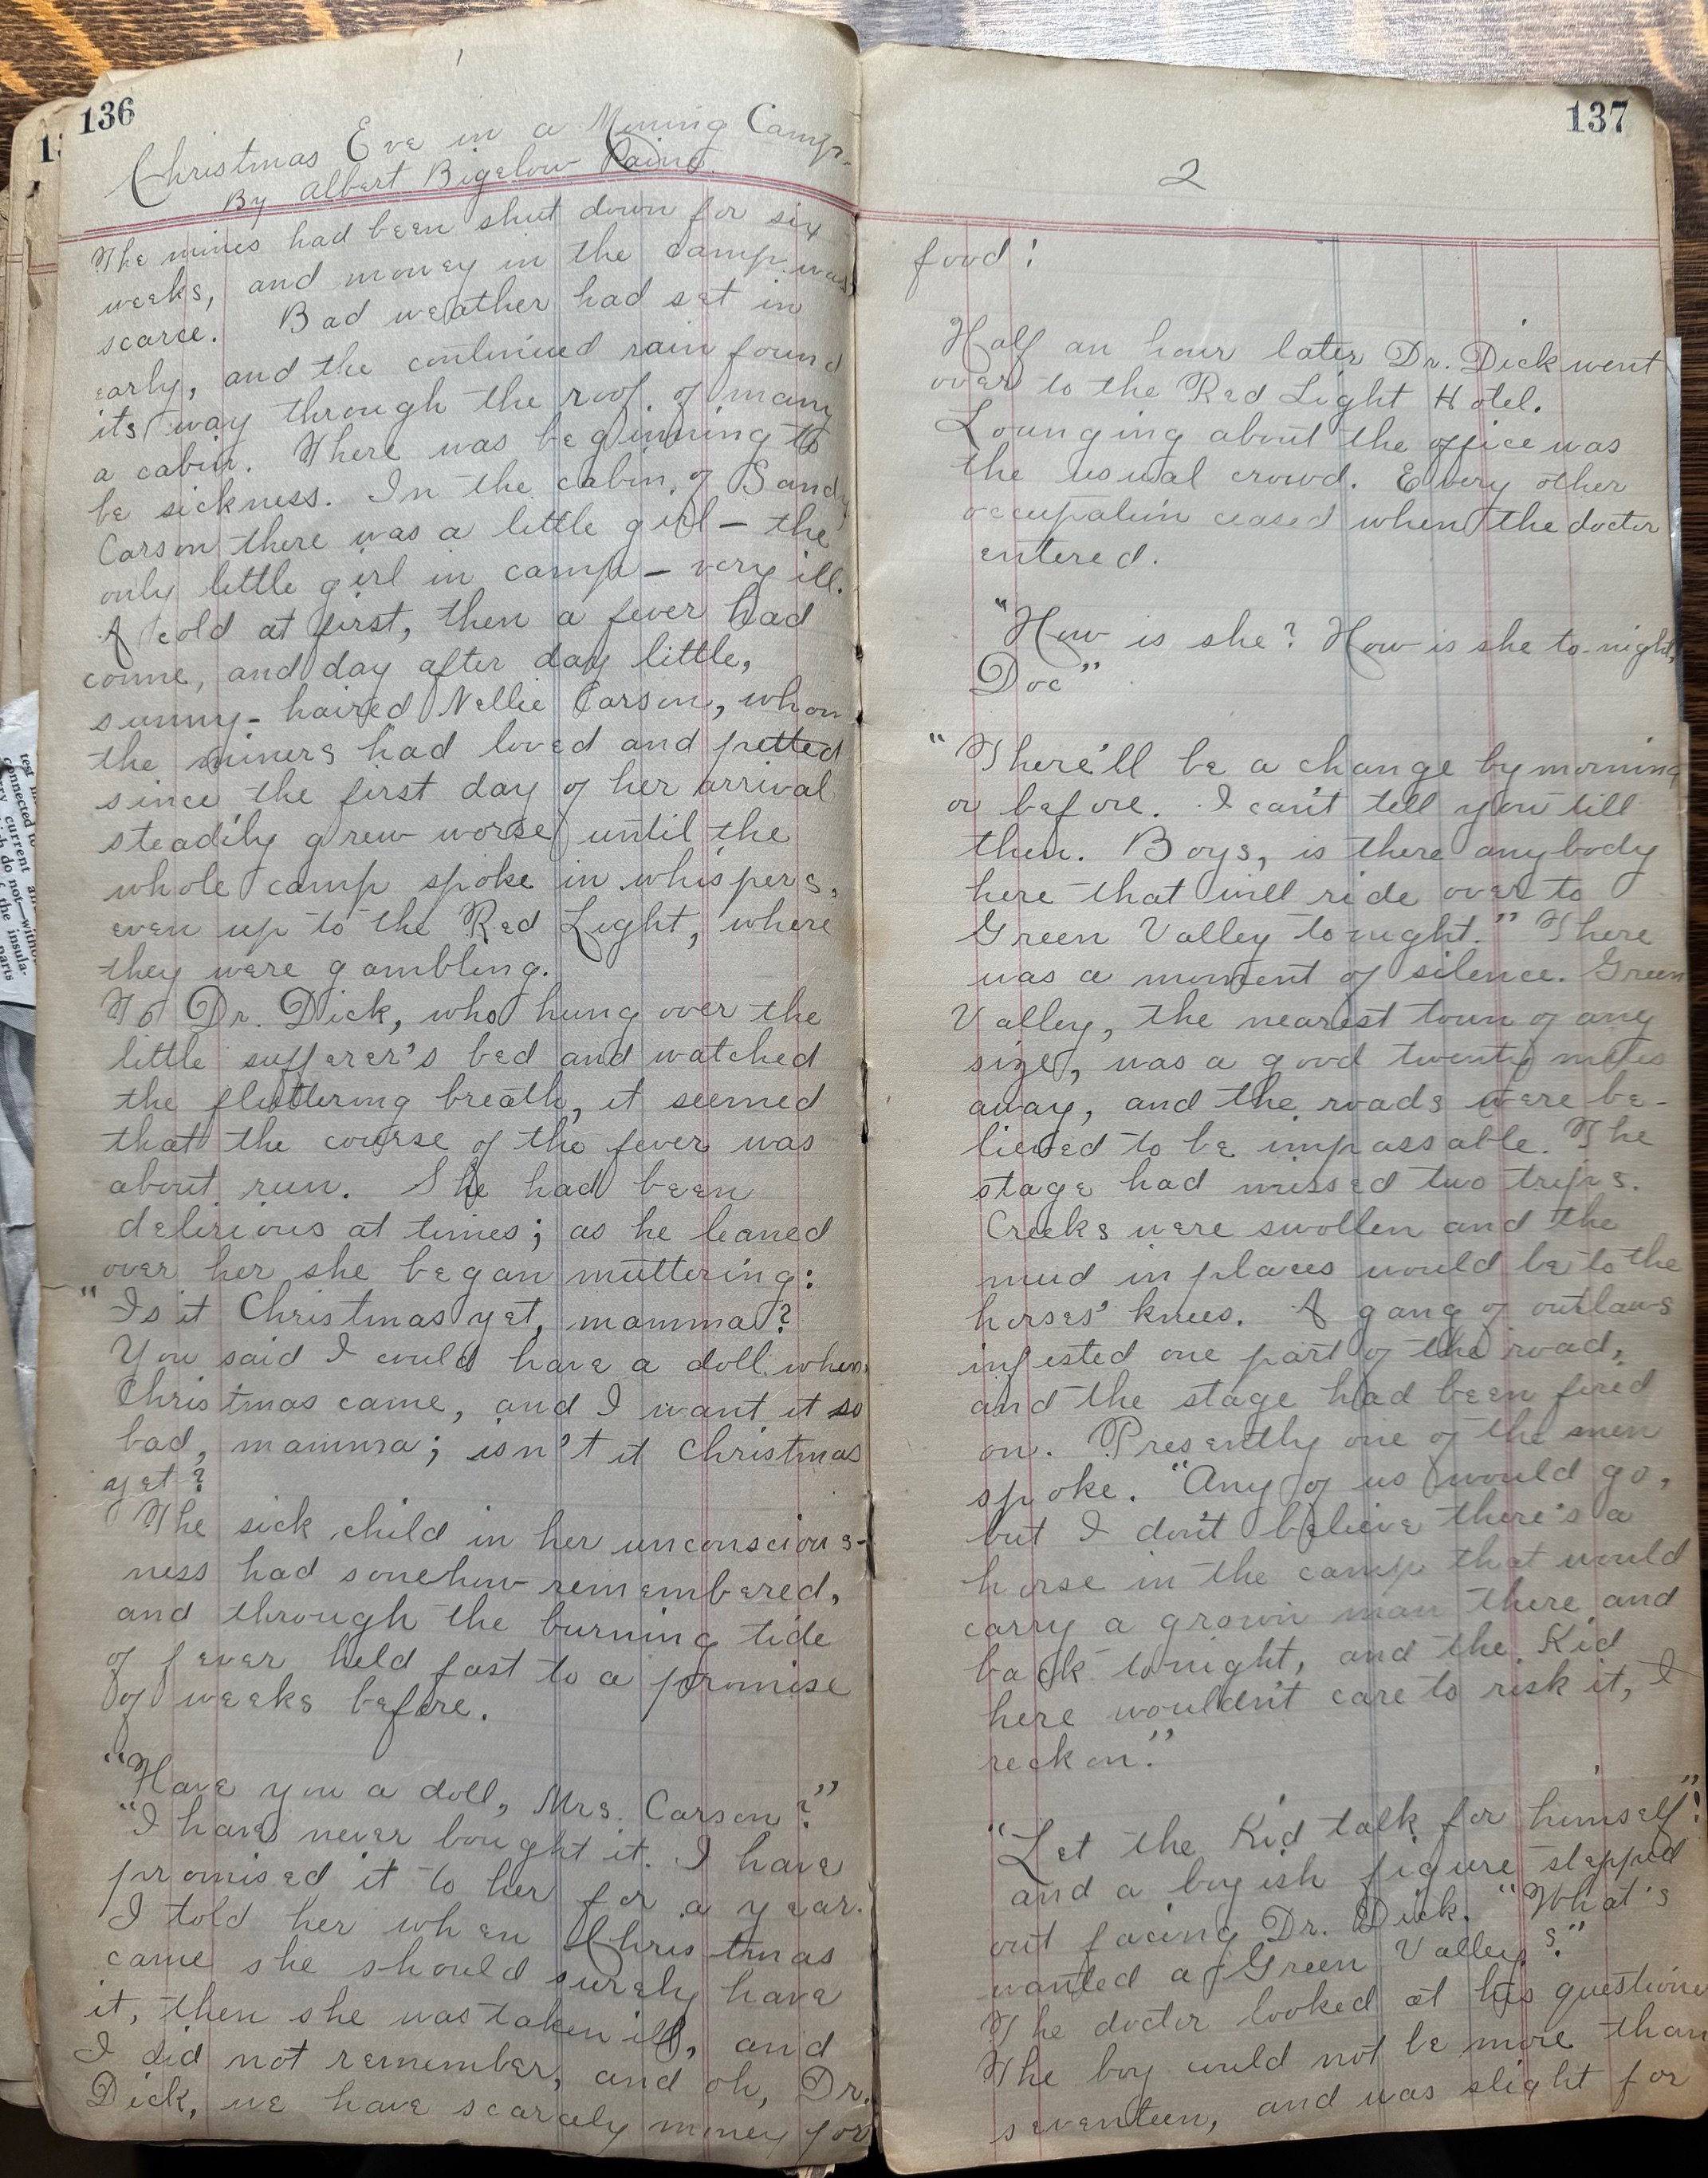 1
136
Christmas Eve in a Mining Camp.
By Albert Bigelow Paine.
The mines had been shut down for six
weeks, and money in the camp was
scarce. Bad weather had set in
early, and the continued rain found
its way through the roof of many
a cabin. There was beginning to
be sickness. In the cabin of Sandy
Carson there was a little girl – the
only little girl in camp – very ill.
A cold at first, then a fever had
come, and day after day little,
sunny-haired Nellie Carson, whom
the miners had loved and petted
since the first day of her arrival
steadily grew worse until the
whole camp spoke in whispers,
even up to the Red Light, where
they were gambling.
To Dr. Dick, who hung over the
little sufferer's bed and watched
the fluttering breath, it seemed
that the course of the fever was
about run. She had been
delirious at times; as he leaned
over her she began muttering:
"Is it Christmas yet, mamma?
You said I could have a doll when
Christmas came, and I want it so
bad, mamma; isn't it Christmas
yet?
The sick child in her unconscious-
ness had somehow remembered,
and through the burning tide
of fever held fast to a promise
of weeks before.
"Have you a doll, Mrs. Carson?"
"I have never bought it. I have
promised it to her for a year.
I told her when Christmas
came she should surely have
it, then she was taken ill, and
I did not remember, and oh, Dr.
Dick, we have scarcely money for
137
2
food!
Half an hour later Dr. Dick went
over to the Red Light Hotel.
Lounging about the office was
the usual crowd. Every other
occupation ceased when the doctor
entered.
"How is she? How is she to-night,
Doc"
"There'll be a change by morning
or before. I can't tell you till
then. Boys, is there anybody
here that will ride over to
Green Valley tonight." There
was a moment of silence. Green
Valley, the nearest town of any
size, was a good twenty miles
away, and the roads were be-
lieved to be impassable. The
stage had missed two trips.
Creeks were swollen and the
mud in places would be to the
horses' knees. A gang of outlaws
infested one part of the road,
and the stage had been fired
on. Presently one of the men
spoke. "Any of us would go,
but I don't believe there's a
horse in the camp that would
carry a grown man there and
back tonight, and the Kid
here wouldn't care to risk it, I
reckon."
"Let the Kid talk for himself!"
and a boyish figure stepped
out facing Dr. Dick. "What's
wanted at Green Valley?"
The doctor looked at his questioner
The boy could not be more than
seventeen, and was slight for
test
connected to
current
do not—witho
the insula-
parts